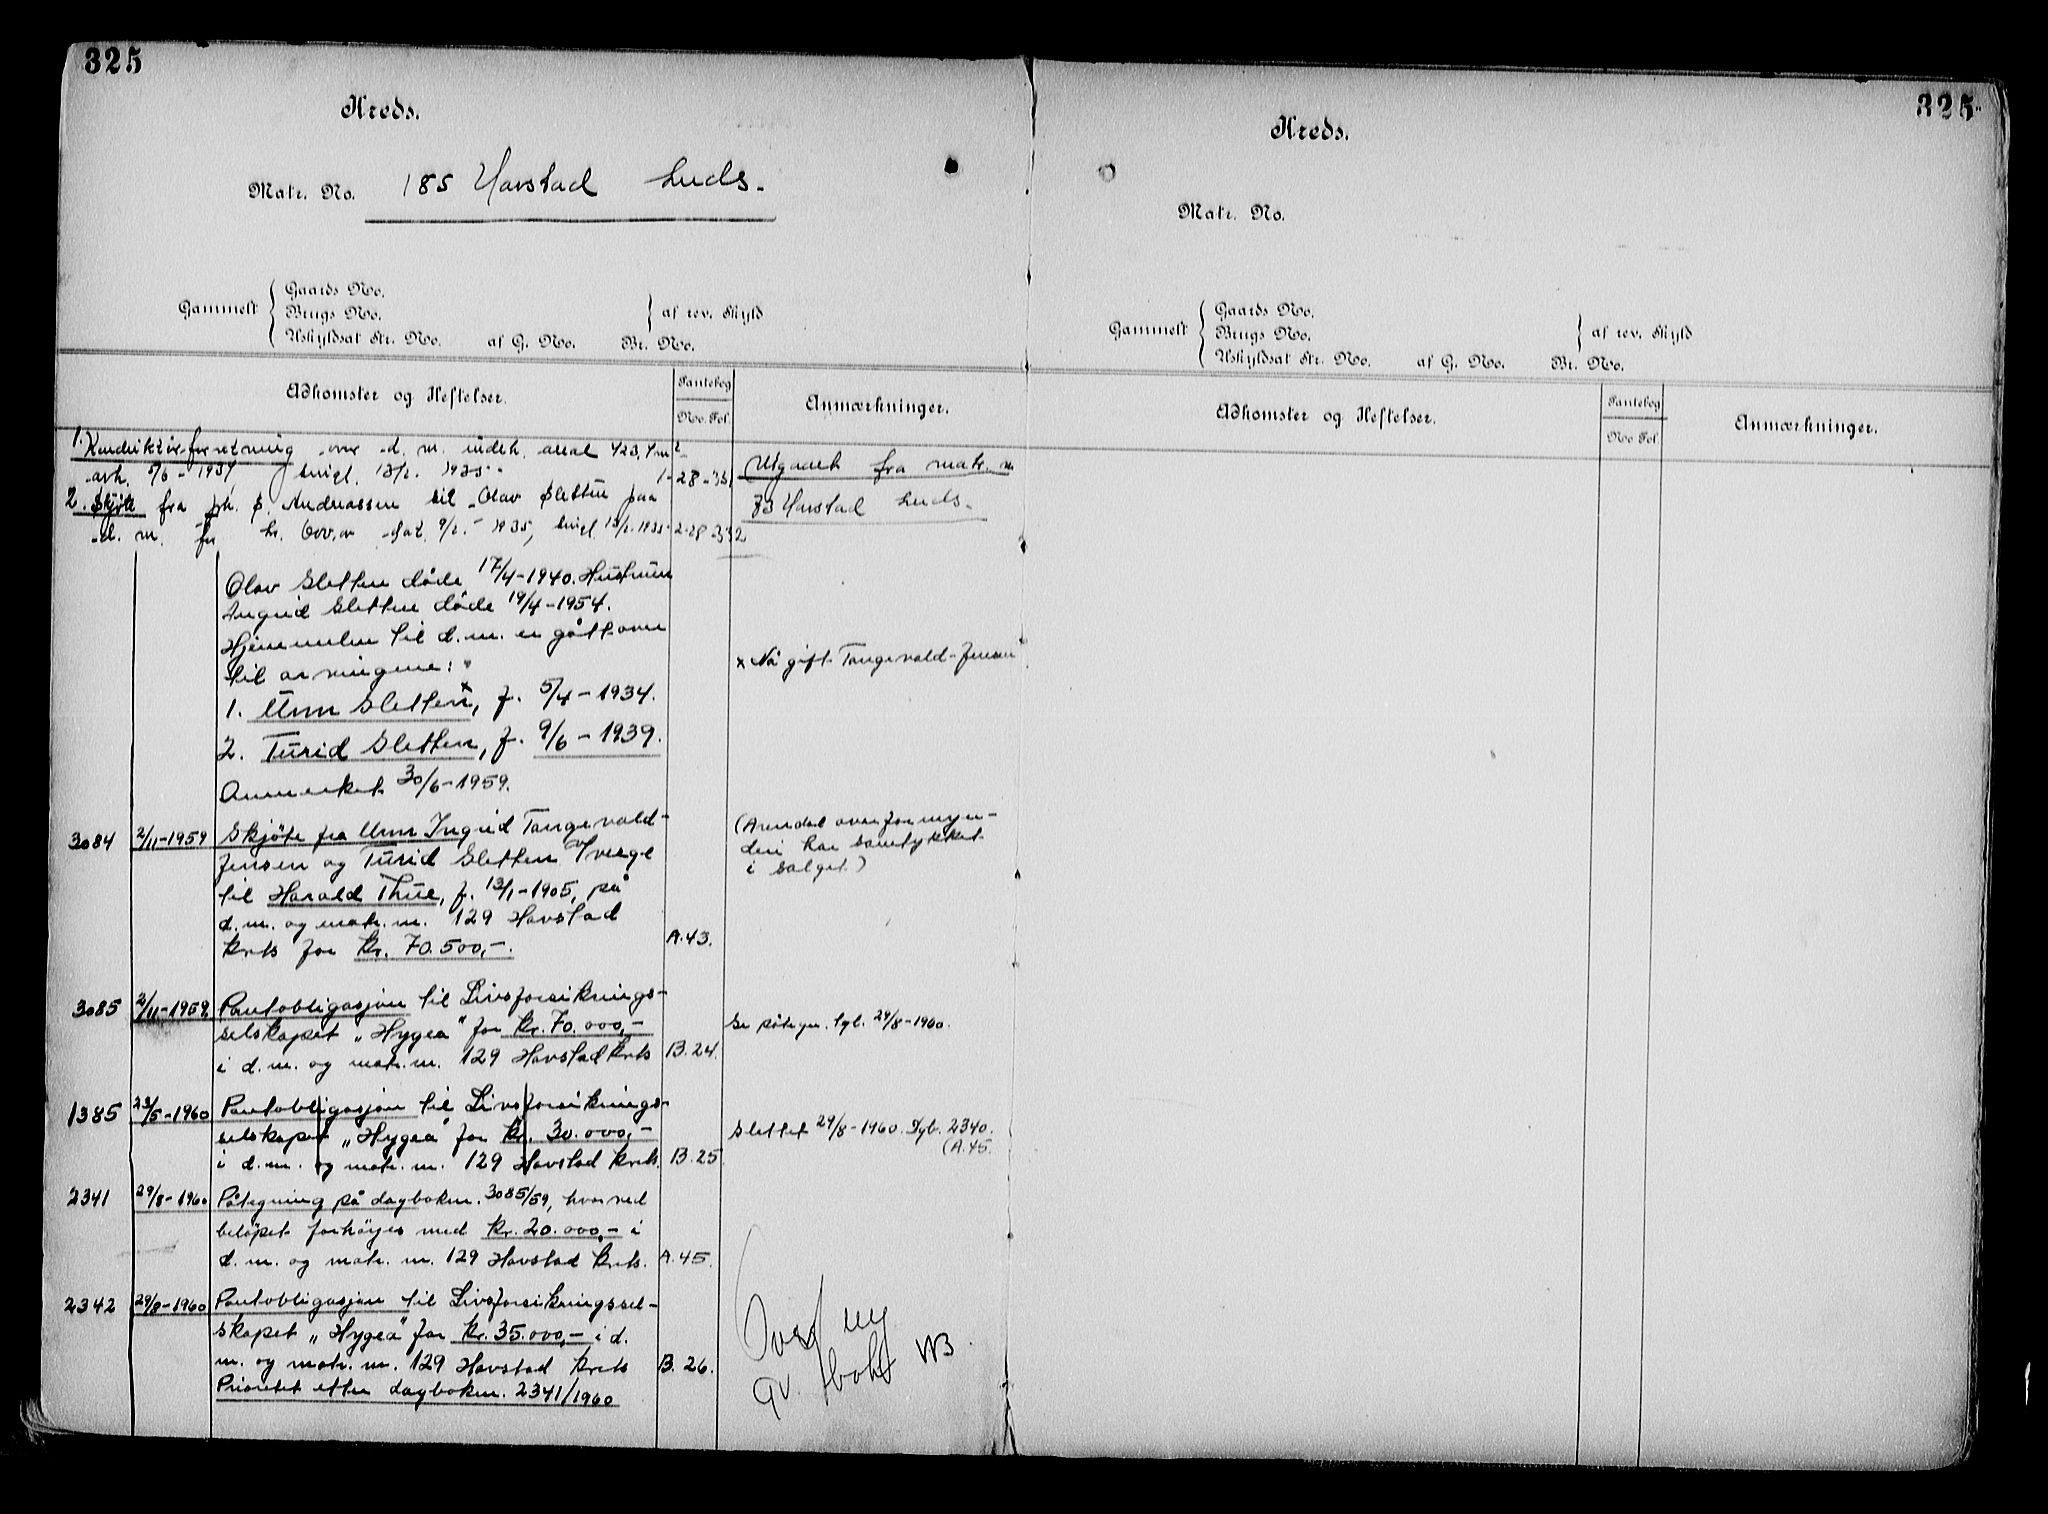 325
Kreds.
Matr. No. 185 Havstad
Gammelt { Gaards No.
Brugs No. } af rev. Skyld
Uskyldsat Str. No. af G. No. Br. No.
Adkomster og Heftelser. Pantebog No. Fol. Anmærkninger.
1. over d. m. areal 423,4 m²
5/6 - 1934 tingl. 12/2. 1935. 1-28-331
Utgaaet fra matr. nr
2. Skjøte fra S. Andreassen til Olav Sletten paa
73 Havstad
d. m. for kr. dat. 9/2 - 1935, tingl 12/2. 1935 2-28-332
Olav Sletten døde 17/4-1940. Hustruen
Ingrid Sletten døde 19/4-1954.
Hjemmelen til d. m. er gått over
til arvingene:
x Nå gift Tangevald-Jensen
1. Unn Sletten x, f. 5/4 - 1934.
2. Turid Sletten, f. 9/6 - 1939.
Anmerket 30/6-1959.
3084 2/11-1959 Skjöte fra Unn Ingrid Tangevald-
(Arendal overformyn-
Jensen og Turid Sletten v/verge
deri har samtykket
til Harald Thue, f. 13/1-1905, på
i salget)
d. m. og matr. nr. 129 Havstad
krets for kr. 70.500,-. A. 43.
3085 2/11-1959. Pantobligasjon til Livsforsikrings-
selskapet „Hygea" for kr. 70.000,-
Se påtegn. tgl. 29/8-1960.
i d. m. og matr. nr. 129 Havstad krets B. 24.
1385 23/5-1960 Pantobligasjon til Livsforsikrings-
selskapet „Hygea" for kr. 30.000,-
Slettet 29/8-1960. Dgb. 2340.
(A. 45.
i d. m. og matr. nr. 129 Havstad krets. B. 25.
2341 29/8-1960 Påtegning på dagboknr. 3085/59, hvorved
beløpet forhøyes med kr. 20.000,- i
d. m. og matr. nr. 129 Havstad krets. A. 45.
2342 29/8-1960 Pantobligasjon til Livsforsikringssel-
skapet „Hygea" for kr. 35.000,- i d.
m. og matr. nr. 129 Havstad krets B. 26.
Prioritet etter dagboknr. 2341/1960
Overf ny
gr. bok
325
Kreds.
Matr. No.
Gammelt { Gaards No.
Brugs No. } af rev. Skyld
Uskyldsat Str. No. af G. No. Br. No.
Adkomster og Heftelser. Pantebog No. Fol. Anmærkninger.